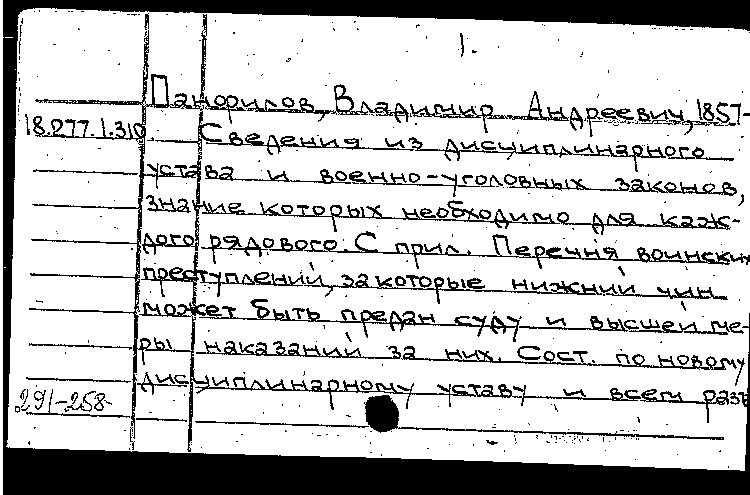 1.
Панфилов, Владимир Андреевич, 1857-
18.277.1.310 Сведения из дисциплинарного
устава и военно-уголовных законов,
знание которых необходимо для каж-
дого рядового. С прил. Перечня воинских
преступлений, за которые нижний чин
может быть предан суду и высшей ме-
ры наказаний за них. Сост. по новому
дисциплинарному уставу и всем разъ
291-258